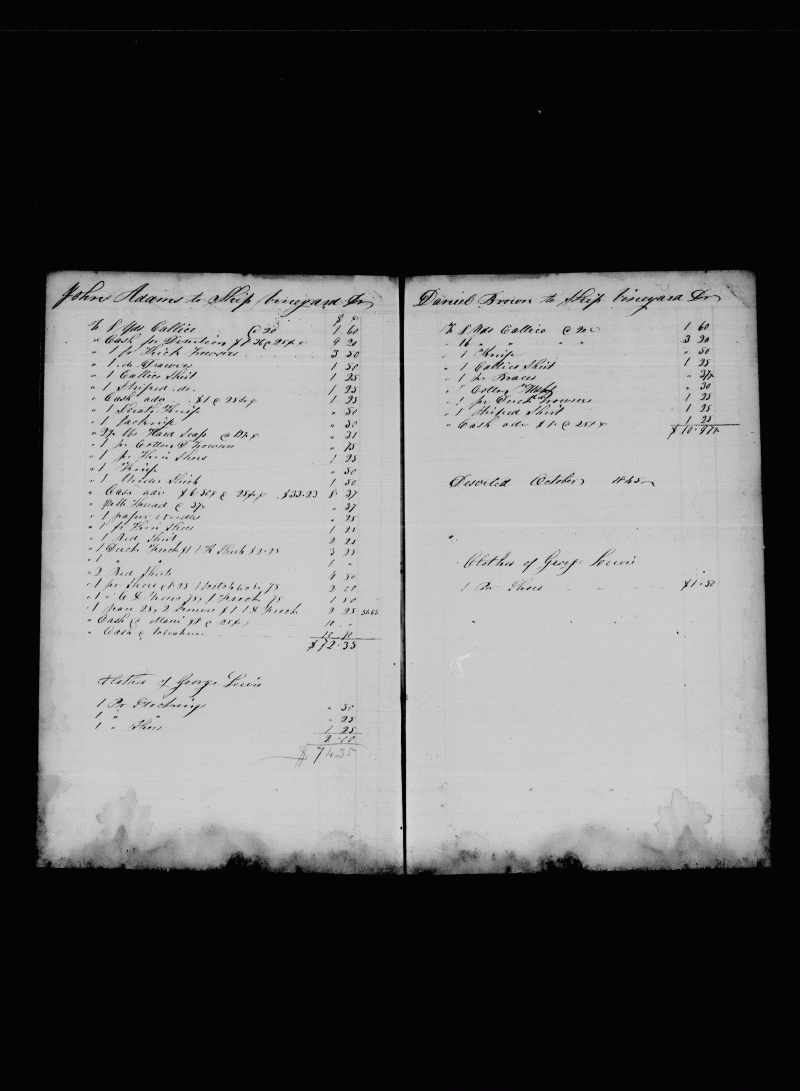 John Adams to Ship Vineyard Dr
$ c
To 8 Yds Callico @ 20 1 60
" Cash for @ 25 pr c 9 20
" 1 pr Thick Trowsers 3 50
" 1 do Drawers 1 50
" 1 Callico Shirt 1 25
" 1 Striped do 1 25
" Cash adv $1 @ 25 pr c 1 25
" 1 Sheath Knife " 50
" 1 Jacknife " 50
" 2½ lbs Hard Soap @ 12½ c " 31
" 1 pr Cotton Trowsers " 75
" 1 pr Thin Shoes 1 25
" 1 Knife " 50
" 1 Under Shirt 1 50
" Cash adv @ 25 pr c $33.23 8 37
" Thread @ 37 " 37
" 1 paper Needles " 25
" 1 pr Thin Shoes 1 25
" 1 Red Shirt 2 25
" 1 Duck 3 25
" 1 " " 1 "
" 2 Red Shirts 4 50
" 1 pr Shoes 1.25 1 75 2 00
" 1 75 1 Frock 75 1 50
" 1 pan 25 2 $1 1 Frock 2 25
" Cash @ Maui $8 @ 25 pr c 10 "
" Cash @ 10 10
$72.35
Clothes of George Lewis
1 Pr Stockings " 50
1 " " " 25
1 " Shoes 1 25
2 00
$74.35
Daniel Brown to Ship Vineyard Dr
To 8 Yds Callico @ 20 c 1 60
" 16 " " " " 3 20
" 1 Knife " 50
" 1 Callico Shirt 1 25
" 1 pr Braces " 37½
" 1 Cotton Hdkf " 30
" 1 pr Duck Trowsers 1 25
" 1 Striped Shirt 1 25
" Cash adv $1 @ 25 pr c 1 25
$10.97½
Deserted October 1845
Clothes of George Lewis
1 Pr Shoes $1.50